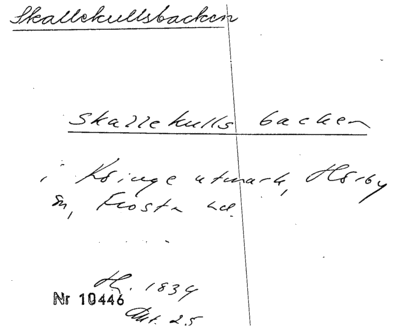 Skallekullsbacken
Skallekulls backen
i Ksinge utmark, Hörby
sn, Frosta hd.
H. 1834
Nr 10446
Akt. 25